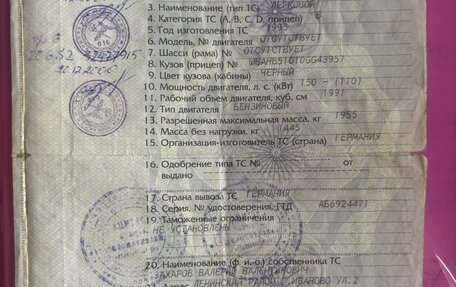 3. Наименование (тип ТС) ЛЕГКОВОЙ
4. Категория ТС (A, B, C, D, прицеп) B
5. Год изготовления ТС 1995
6. Модель, № двигателя ОТСУТСТВУЕТ
7. Шасси (рама) № ОТСУТСТВУЕТ
8. Кузов (прицеп) № WBAHB51010GG43957
9. Цвет кузова (кабины) ЧЕРНЫЙ
10. Мощность двигателя, л. с. (кВт) 150 - (110)
11. Рабочий объем двигателя, куб. см 1991
12. Тип двигателя БЕНЗИНОВЫЙ
13. Разрешенная максимальная масса, кг 1955
14. Масса без нагрузки, кг 1445
15. Организация-изготовитель ТС (страна) ГЕРМАНИЯ
16. Одобрение типа ТС № от
выдано
17. Страна вывоза ТС ГЕРМАНИЯ
18. Серия, № удостоверения, ГТД АБ6924471
19. Таможенные ограничения
НЕ УСТАНОВЛЕНЫ
20. Наименование (ф. и. о.) собственника ТС
ЗАХАРОВ ВАЛЕРИЙ ВАЛЕНТИНОВИЧ
21. Адрес ЛЕНИНСКИЙ РАЙОН С.ИВАНОВО УЛ.2